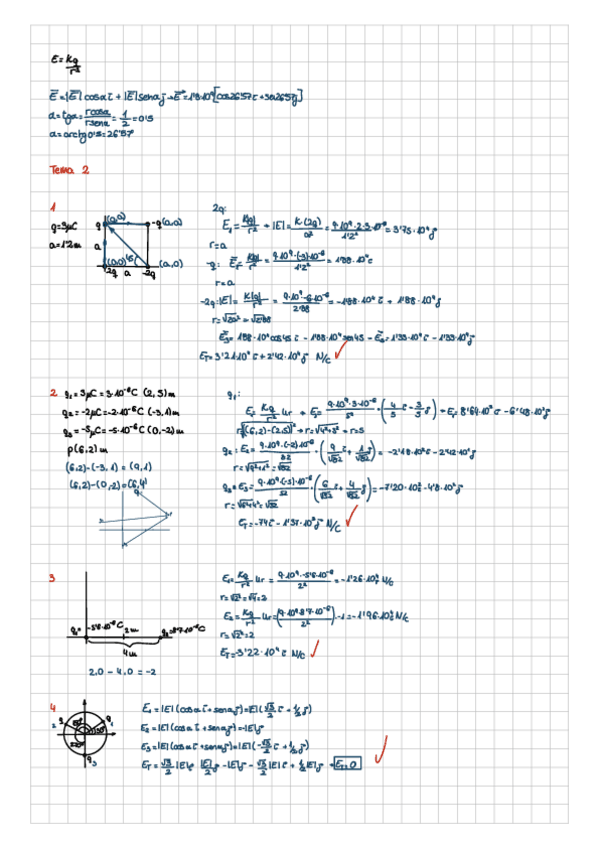 E = Kq/r²
E⃗ = |E| cosα i + |E| senα j → E⃗ = 1'8·10⁴ [cos26'57 i + sen26'57 j]
α = tgα = rcosα/rsenα = 1/2 = 0'5
α = arctg 0'5 = 26'57°
Tema 2
1
q = 3μC
a = 1'2 m
q (0,a) -q (a,a)
a
(0,0) 45° (a,0)
2q a -2q
2q:
E₁ = K|q|/r² → |E| = K·(2q)/a² = 9·10⁹·2·3·10⁻⁶/1'2² = 3'75·10⁴ j
r = a
-q: E₂ = K|q|/r² = 9·10⁹·(-3)·10⁻⁶/1'2² = 1'88·10⁴ i
r = a
-2q: |E| = K|q|/r² = 9·10⁹·6·10⁻⁶/2'88 = -1'88·10⁴ i + 1'88·10⁴ j
r = √2a² = √2'88
E₃ = 1'88·10⁴ cos45 i - 1'88·10⁴ sen45 → E₃ = 1'33·10⁴ i - 1'33·10⁴ j
E_T = 3'21·10⁴ i + 2'42·10⁴ j N/C
2
q₁ = 3μC = 3·10⁻⁶C (2,5) m
q₂ = -2μC = -2·10⁻⁶C (-3,1) m
q₃ = -5μC = -5·10⁻⁶C (0,-2) m
P (6,2) m
(6,2)-(-3,1) = (9,1)
(6,2)-(0,2) = (6,4)
q₁:
E₁ = K·q/r² ur → E₁ = 9·10⁹·3·10⁻⁶/5² · (4/5 i - 3/5 j) → E₁ = 8'64·10² i - 6'48·10² j
r = |(6,2)-(2,5)|² → r = √4²+3² → r = 5
q₂: E₂ = 9·10⁹·(-2)·10⁻⁶/82 · (9/√82 i + 1/√82 j) = -2'18·10² i - 2'42·10¹ j
r = √9²+1² = √82
q₃: E₃ = 9·10⁹·(-5)·10⁻⁶/52 · (6/√52 i + 4/√52 j) = -7'20·10² i - 4'8·10² j
r = √6²+4² = √52
E_T = -74 i - 1'37·10³ j N/C
3
q₁ = -5'6·10⁻⁶ C 2m q₂ = 8'7·10⁻⁶ C
4m
2,0 - 4,0 = -2
E₁ = Kq/r² ur = 9·10⁹·-5'6·10⁻⁶/2² = -1'26·10⁴ N/C
r = √2² = √4 = 2
E₂ = Kq/r² ur = (9·10⁹·8'7·10⁻⁶/2²)·-1 = -1'96·10⁴ N/C
r = √2² = 2
E_T = -3'22·10⁴ i N/C
4
E₁ = |E| (cosα i + senα j) = |E| (√3/2 i + 1/2 j)
E₂ = |E| (cosα i + senα j) = -|E| j
E₃ = |E| (cosα i + senα j) = |E| (-√3/2 i + 1/2 j)
E_T = √3/2 |E| i + 1/2 |E| j - |E| j - √3/2 |E| i + 1/2 |E| j → E_T = 0